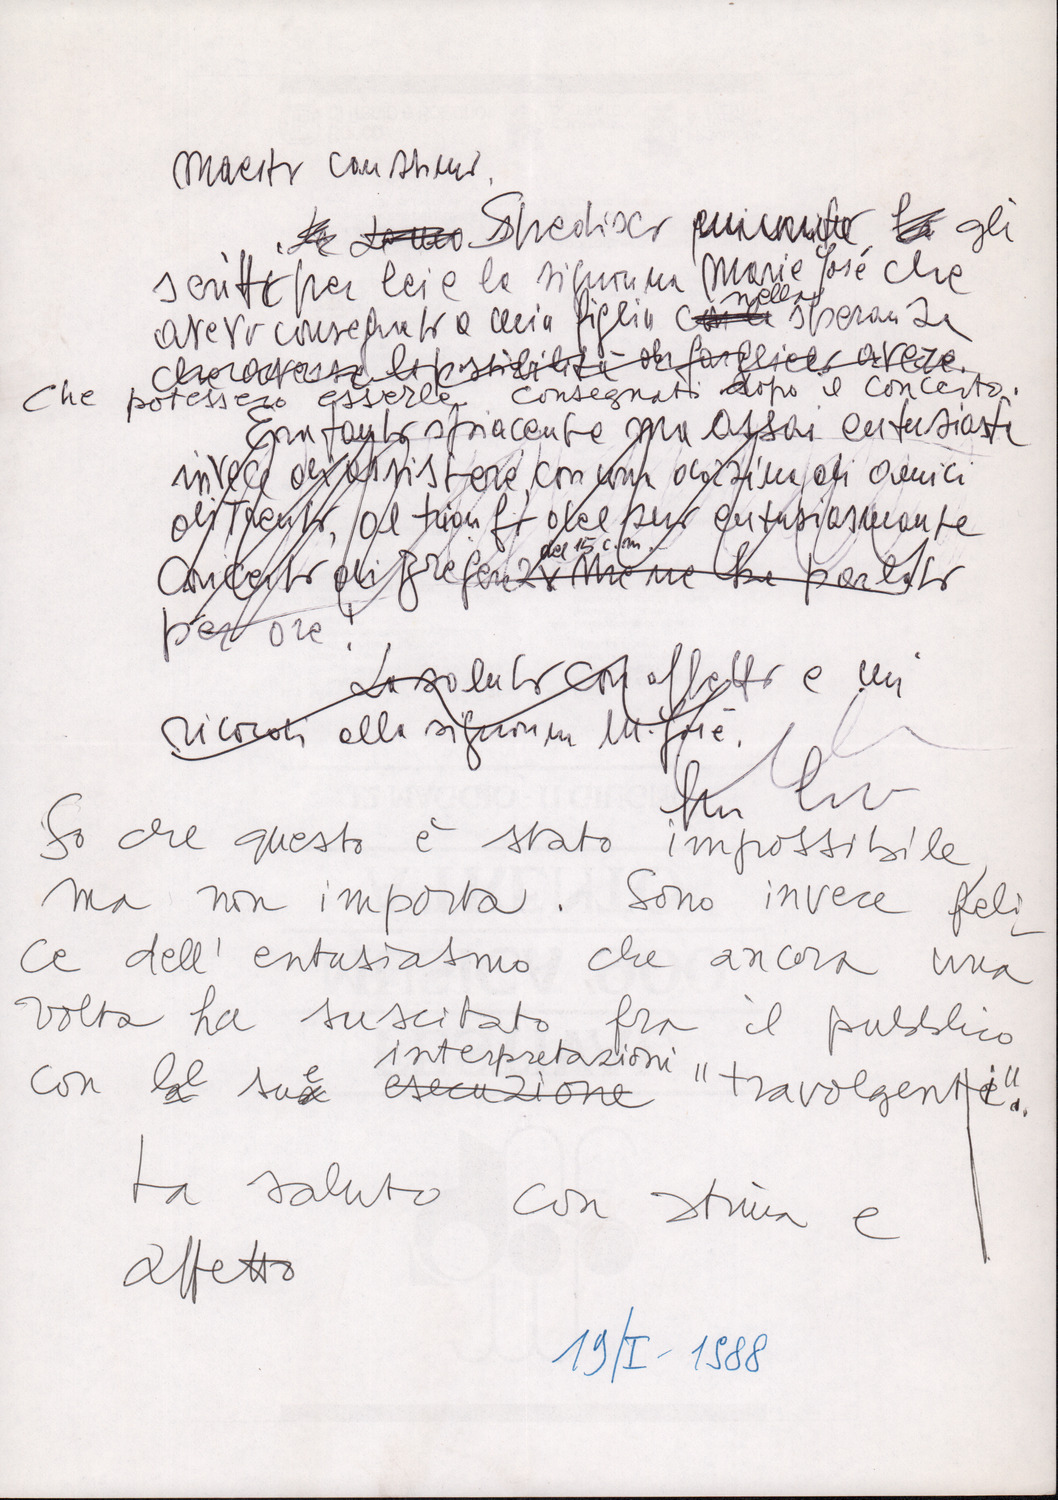 Maestro carissimo,
Spedisco finalmente gli
scritti per lei e la signorina Marie José che
avevo consegnato a mia figlia con la nella speranza
che avesse la possibilità di farglieli avere.
che potessero esserle consegnati dopo il concerto.
Era tanto spiacente ma assai entusiasta
invece di assistere, con una decina di amici
di Trento, al trionfo del suo entusiasmante
del 15 c.m.
concerto di Bregenz. Me ne ha parlato
per ore!
La saluto con affetto e mi
ricordi alla signorina M. José.
So che questo è stato impossibile,
ma non importa. Sono invece feli-
ce dell'entusiasmo che ancora una
volta ha suscitato fra il pubblico
interpretazioni
con le sue esecuzione "travolgenti".
La saluto con stima e
affetto
19/I - 1988